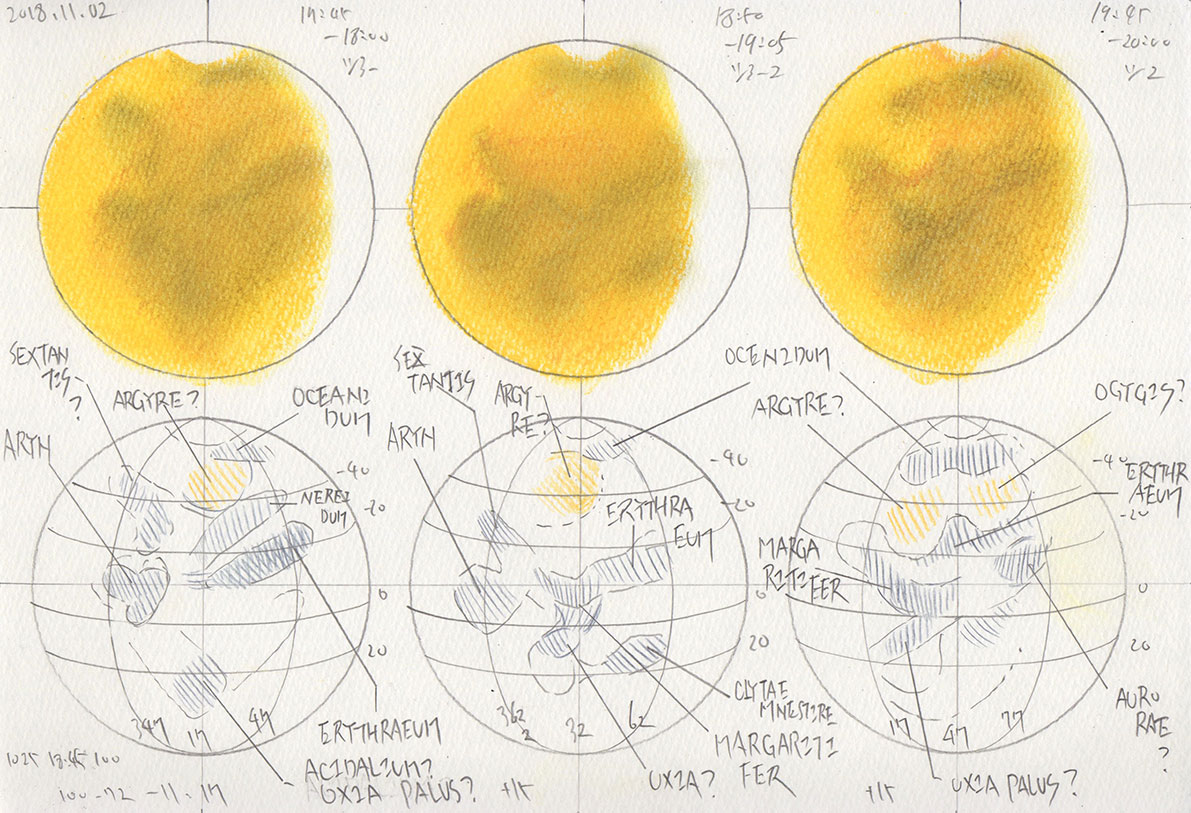 2018.11.02
17:45
-18:00
1/3-
18:50
-19:05
1/3-2
19:45
-20:00
1/2
SEXTAN
TIS
?
ARGYRE?
OCEANI
DUM
ARYN
NEREI
DUM
-40
-20
0
20
347
17
47
ERYTHRAEUM
ACIDALIUM?
OXIA PALUS?
SEX
TANTIS
ARGY-
RE?
ARYN
OCENIDUM
-40
-20
ERYTHRA
EUM
0
20
CLYTAE
MNESTRE
MARGARITI
FER
OXIA?
362
2
32
62
+15
ARGYRE?
OGYGIS?
-40
ERYTHR
AEUM
-20
MARGA
RITI
FER
0
20
AURO
RAE
?
17
47
77
OXIA PALUS?
+15
1025 18:45 100
100-72 -11.17